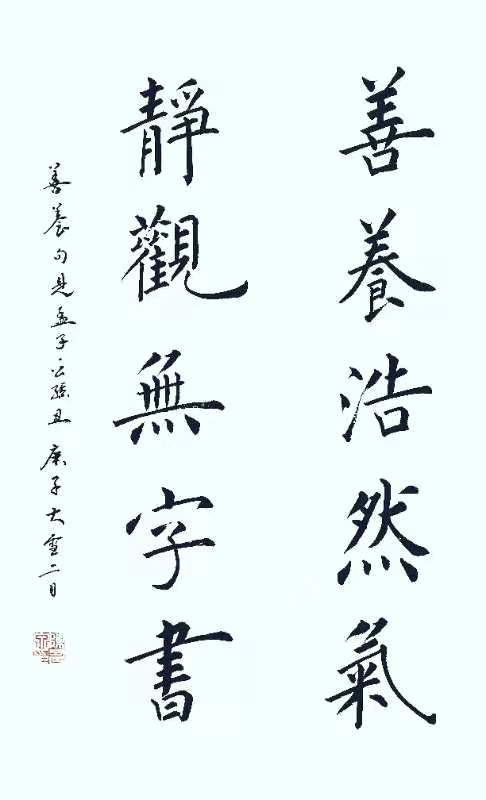 善養浩然氣
靜觀無字書
善養句見孟子公孫丑 庚子大雪二日